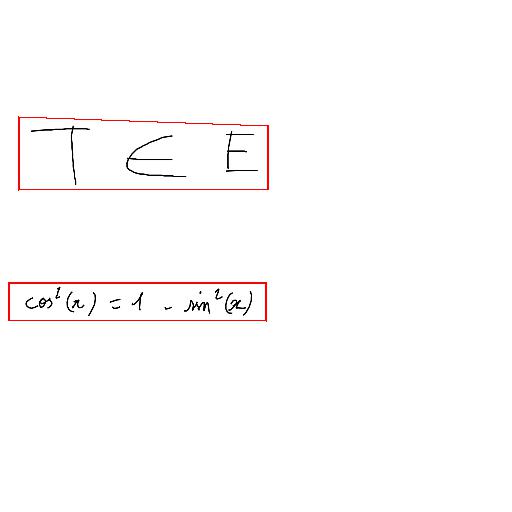 T ∈ E
cos²(x) = 1 - sin²(x)